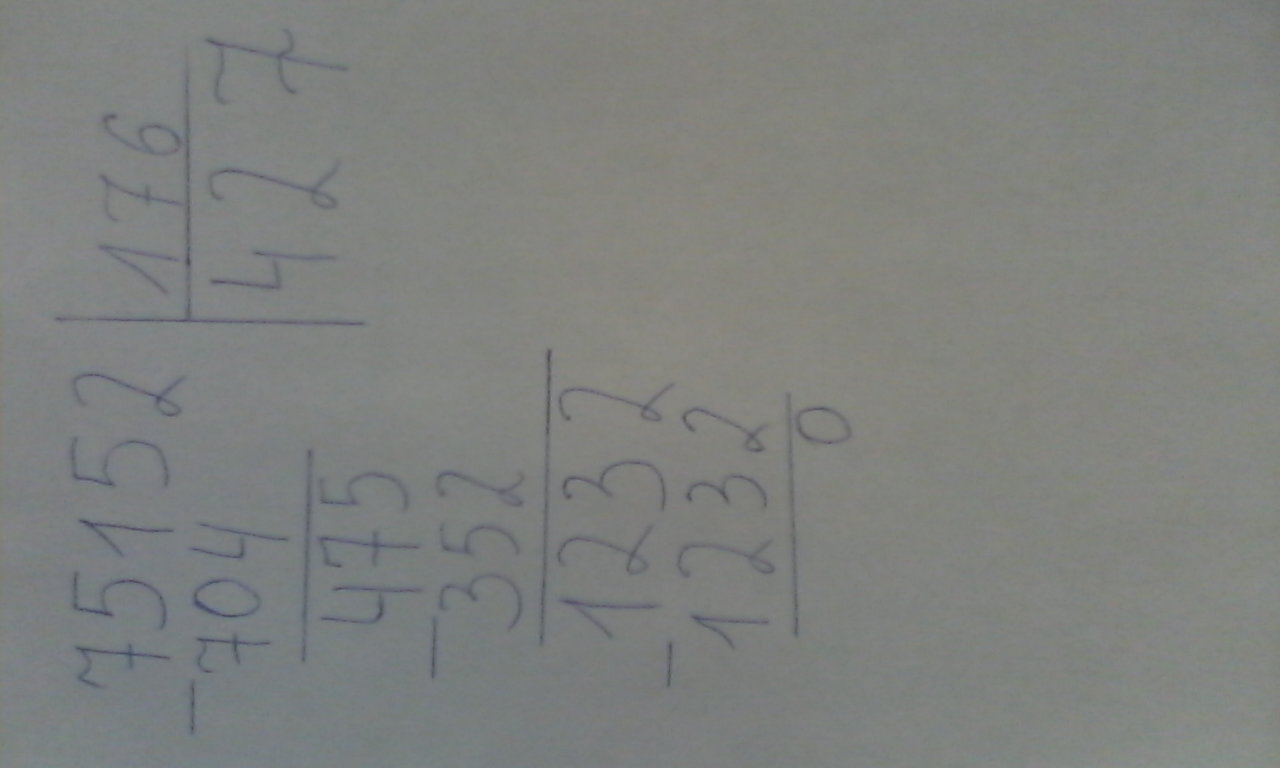 75152 176
-704 427
475
-352
1232
-1232
0